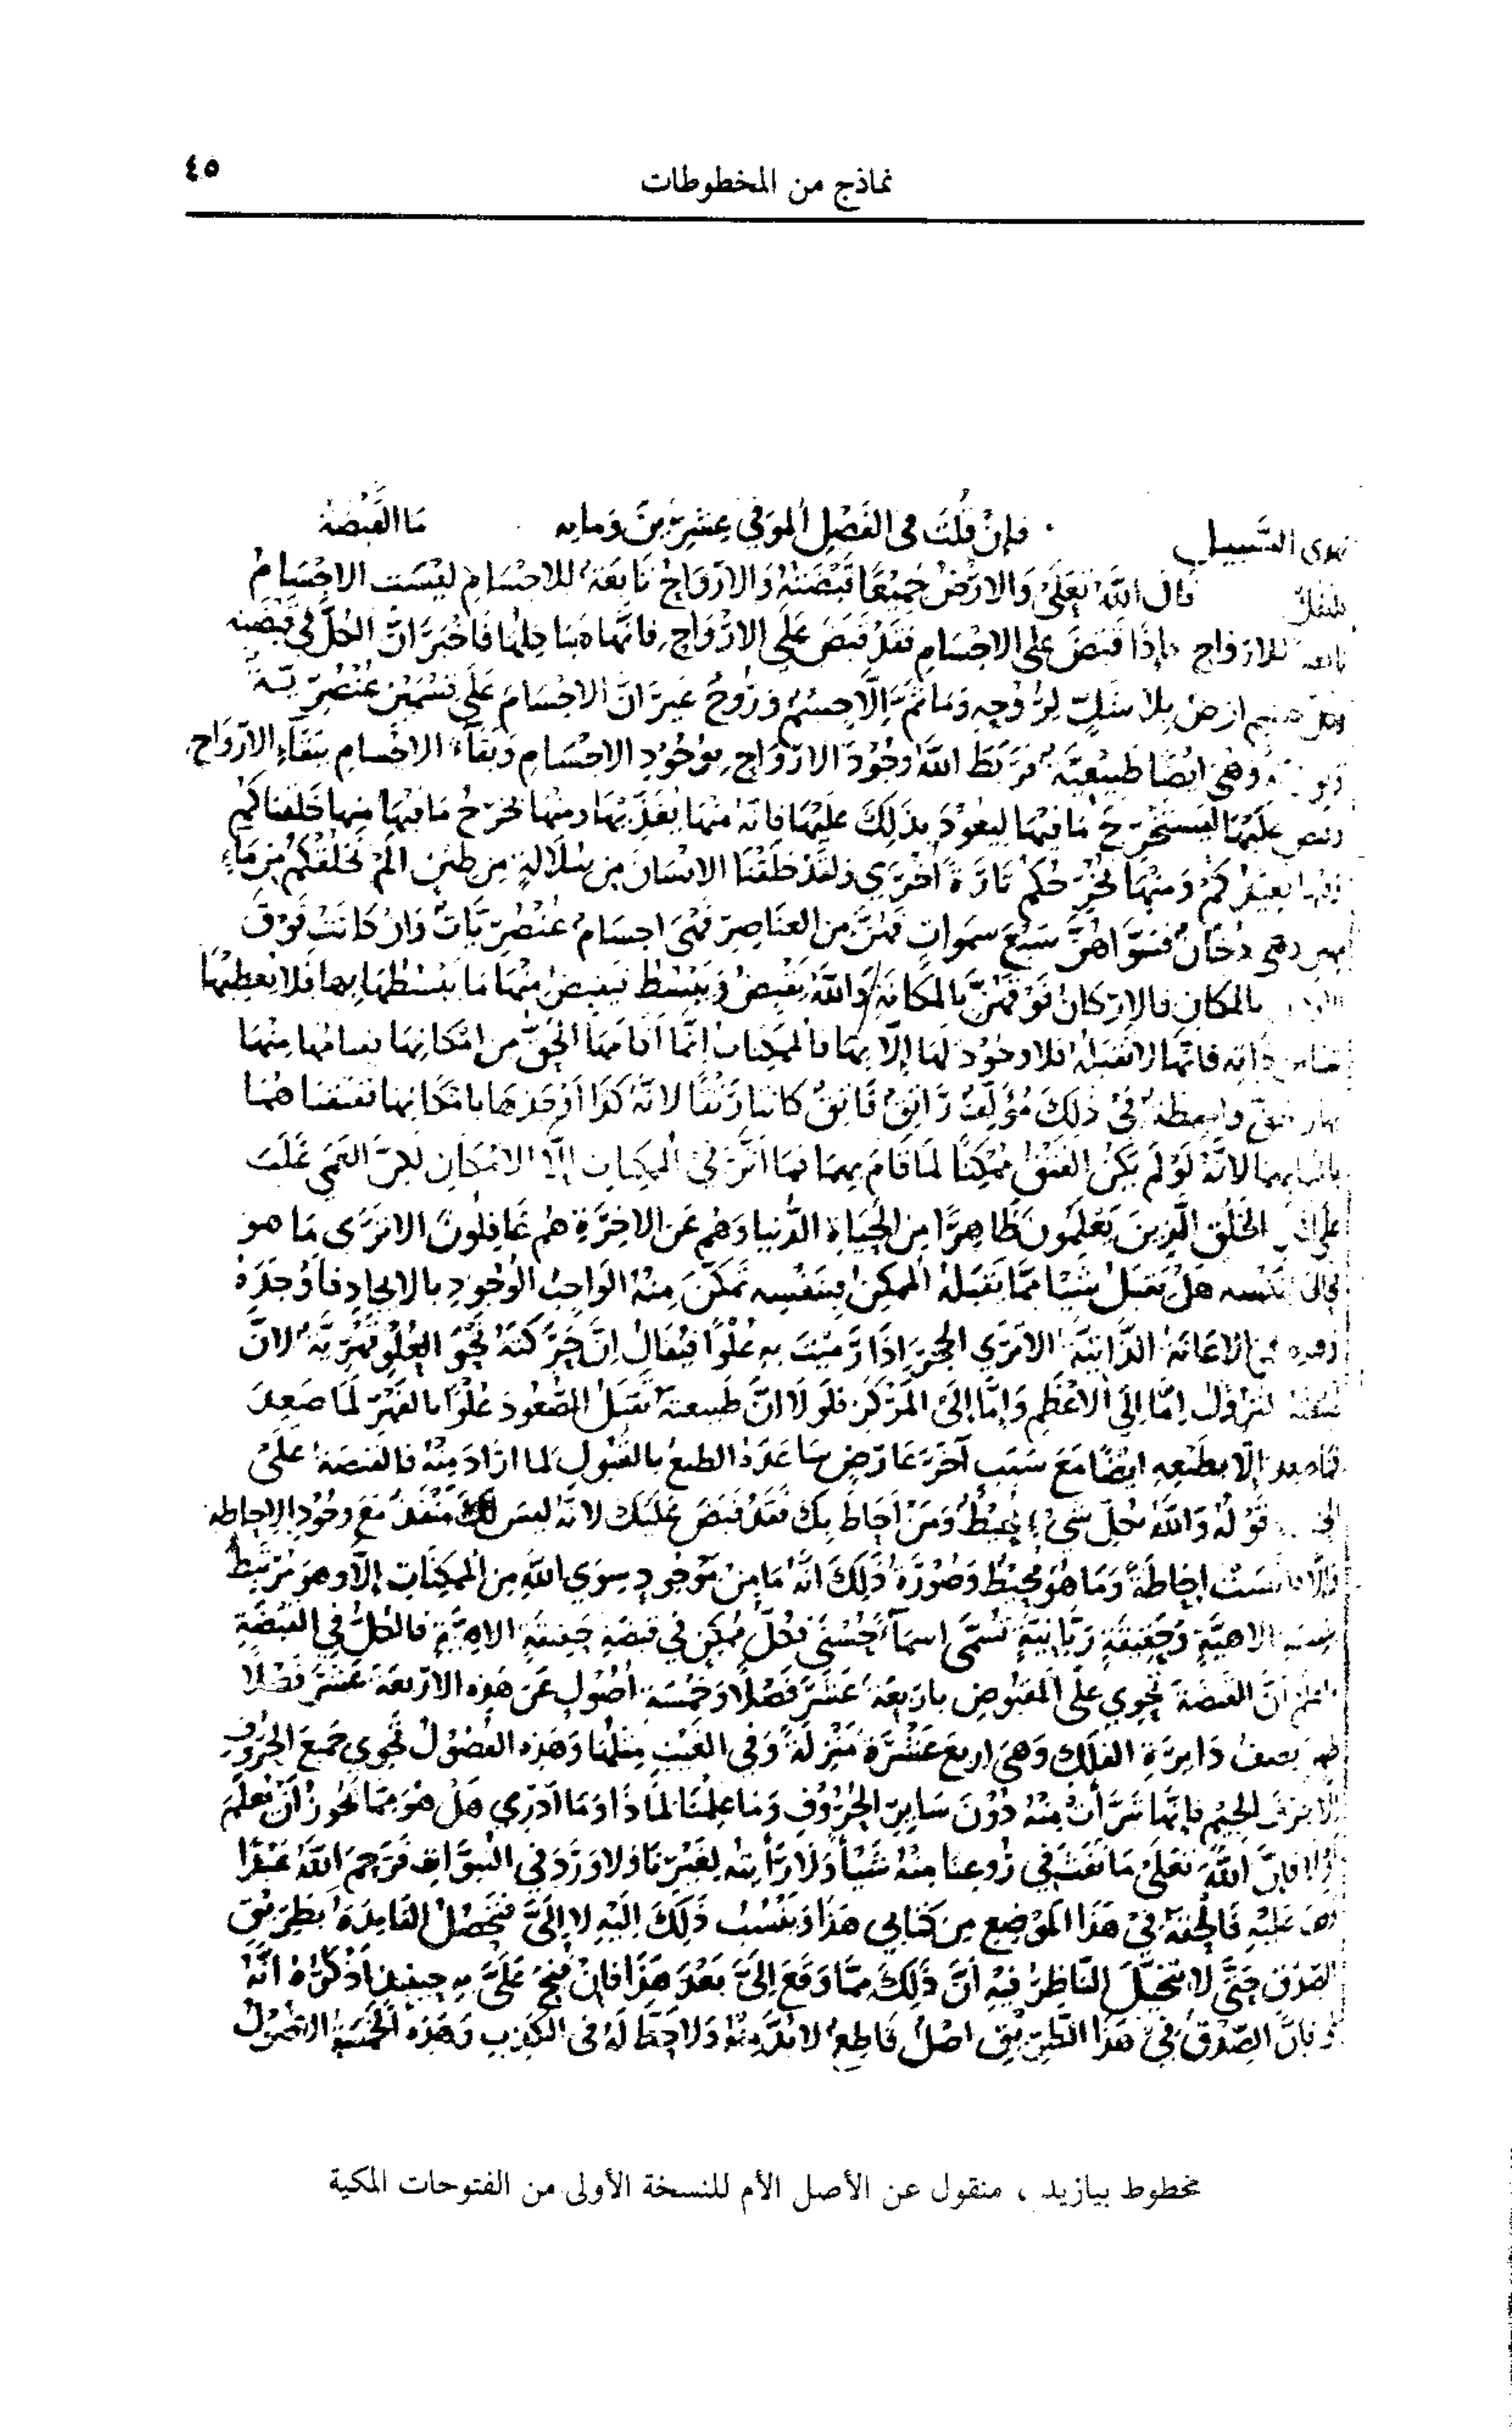 نماذج من المخطوطات
٤٥
يهدي السبيل فإن قلت في الفصل الموفي عشرين وماية ما القبضة
قال الله تعلى والارض جميعا قبضته والارواح تابعة للاجسام ليست الاجسام
للارواح فاذا قبض على الاجسام فقد قبض على الارواح فانها هياكلها فاخبر ان الكل في قبضته
ارض لروحه وما ثم الا جسم وروح غير ان الاجسام على قسمين عنصرية
وهي ايضا طبيعية فربط الله وجود الارواح بوجود الاجسام وبقاء الاجسام ببقاء الارواح
عليها ليستخرج ما فيها ليعود بذلك عليها فانه منها يغذيها ومنها يخرج ما فيها منها خلقناكم
نعيدكم ومنها نخرجكم تارة اخرى ولقد خلقنا الانسان من سلالة من طين الم نخلقكم من ماء
مهين وهي دخان فسواهن سبع سموات فهن من العناصر فهي اجسام عنصريات وان كانت فوق
بالمكان فالاركان فوقهن بالمكانة والله يقبض ويبسط فيقبض منها ما يبسطها بها فلا يعطيها
ذاته فانها لا تقبله فلا وجود لها الا بها فالممكنات انما اقامها الحق من امكانها فقيامها منها
واسطة في ذلك مؤلف راتق فاتق كانتا رتقا لانه كذا اوجدها بامكانها ففتقناهما
لانه لو لم يكن الفتق ممكنا لما قام بهما فما اثر في الممكنات الا الامكان لكن العمى غلب
على الخلق الذين يعلمون ظاهرا من الحياة الدنيا وهم عن الاخرة هم غافلون الا ترى ما هو
نفسه هل يقبل شيئا مما يقبله الممكن فبنفسه تمكن منه الواجب الوجود بالايجاد فاوجده
الاعانة الذاتية الا ترى الحجر اذا رميت به علوا فيقال ان حركته نحو العلو قهرية لان
النزول اما الى الاعظم واما الى المركز فلولا ان طبيعته تقبل الصعود علوا بالقهر لما صعد
فما صعد الا بطبعه ايضا مع سبب آخر عارض ساعده الطبع بالقبول لما اراد منه فالقبضة على
قوله والله بكل شيء محيط ومن احاط بك فقد قبض عليك لانه ليس لك منفذ مع وجود الاحاطة
والا فليست احاطة وما هو محيط وصورة ذلك انه ما من موجود سوى الله من الممكنات الا وهو مرتبط
الاهية وحقيقة ربانية تسمى اسماء حسنى فكل ممكن في قبضة حقيقة الاهية فالكل في القبضة
واعلم ان القبضة تحوي على المقبوض باربعة عشر فصلا وخمسة اصول عن هذه الاربعة عشر فصلا
نصف دايرة الفلك وهي اربع عشرة منزلة وفي الغيب مثلها وهذه الفصول تحوي جميع الحروف
الا حرف الجيم فانها تبرأت منه دون ساير الحروف وما علمنا لماذا وما ادري هل هو مما يجوز ان يعلم
ام لا فان الله تعلى ما نفث في روعنا منه شيئا ولا رأيته لغيرنا ولا ورد في النبوات فرحم الله عبدا
عليه فالحقه في هذا الموضع من كتابي هذا وينسب ذلك اليه لا الي فتحصل الفايدة بطريق
الصدق حتى لا يتخيل الناظر فيه ان ذلك مما وقع الي بعد هذا فان فتح علي به حينيذ اذكره انه
فان الصدق في هذا الطريق اصل قاطع لا بد منه ولا حظ له في الكذب وهذه الخمسة الاصول
مخطوط بيازيد ، منقول عن الأصل الأم للنسخة الأولى من الفتوحات المكية